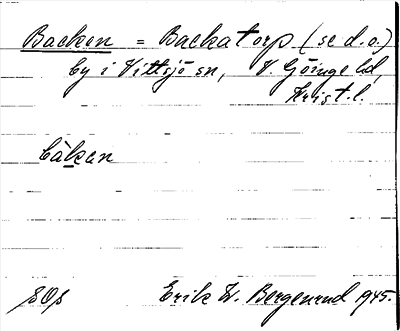 Backen = Backatorp (se d.o.)
by i Vittsjö sn, V. Göinge hd,
Krist. l.
bàkan
Erik W. Bergenrud 1945.